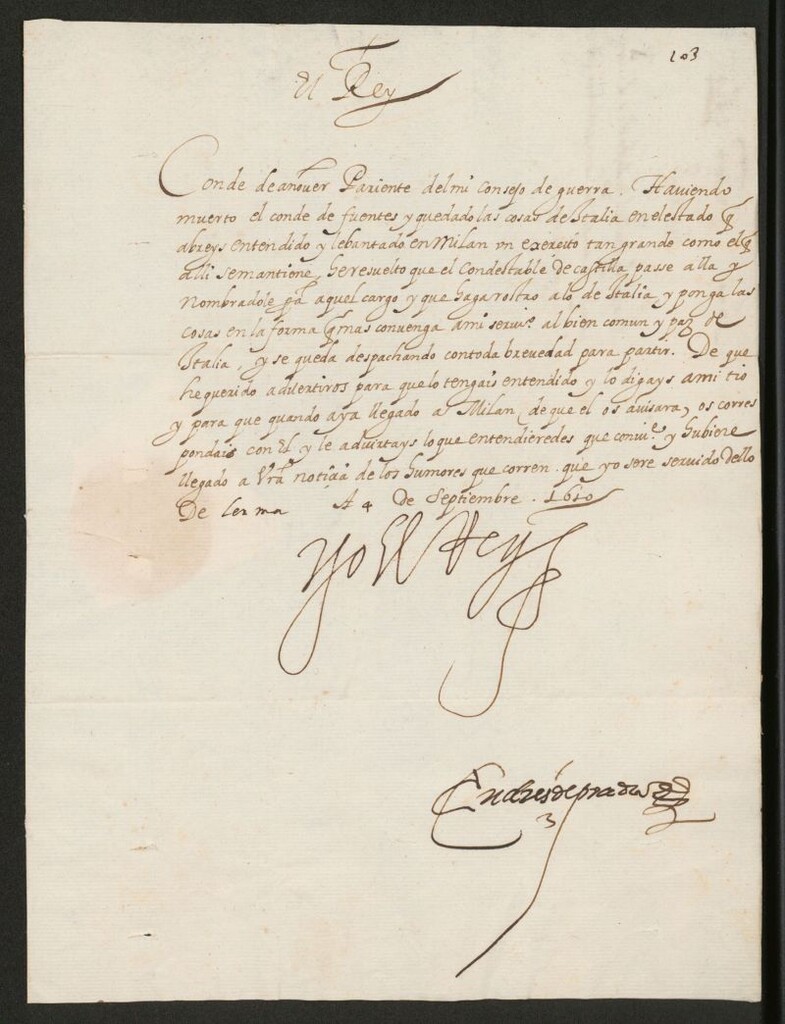 103
El Rey
Conde de añover Pariente del mi consejo de guerra. Haviendo
muerto el conde de fuentes y quedado las cosas de Italia en el estado q̃
abreys entendido y lebantado en Milan vn exército tan grande como el q̃
alli se mantiene, he resuelto que el Condestable de castilla passe alla y
Nombradole pa aquel cargo y que haga rostro a lo de Italia y ponga las
cosas en la forma q̃ mas conuenga a mi seruio al bien comun y paz de
Italia, y se queda despachando con toda brevedad para partir. De que
he querido advertiros para que lo tengais entendido y lo digays a mi tio
y para que quando aya llegado a Milan (de que el os avisara) os corres
pondais con el y le advirtays lo que entendieredes que convie y hubiere
llegado a Vra noticia de los humores que corren. que yo sere servido dello
De lerma A 4 de Septiembre. 1610
Yo El Rey
Andres de prada